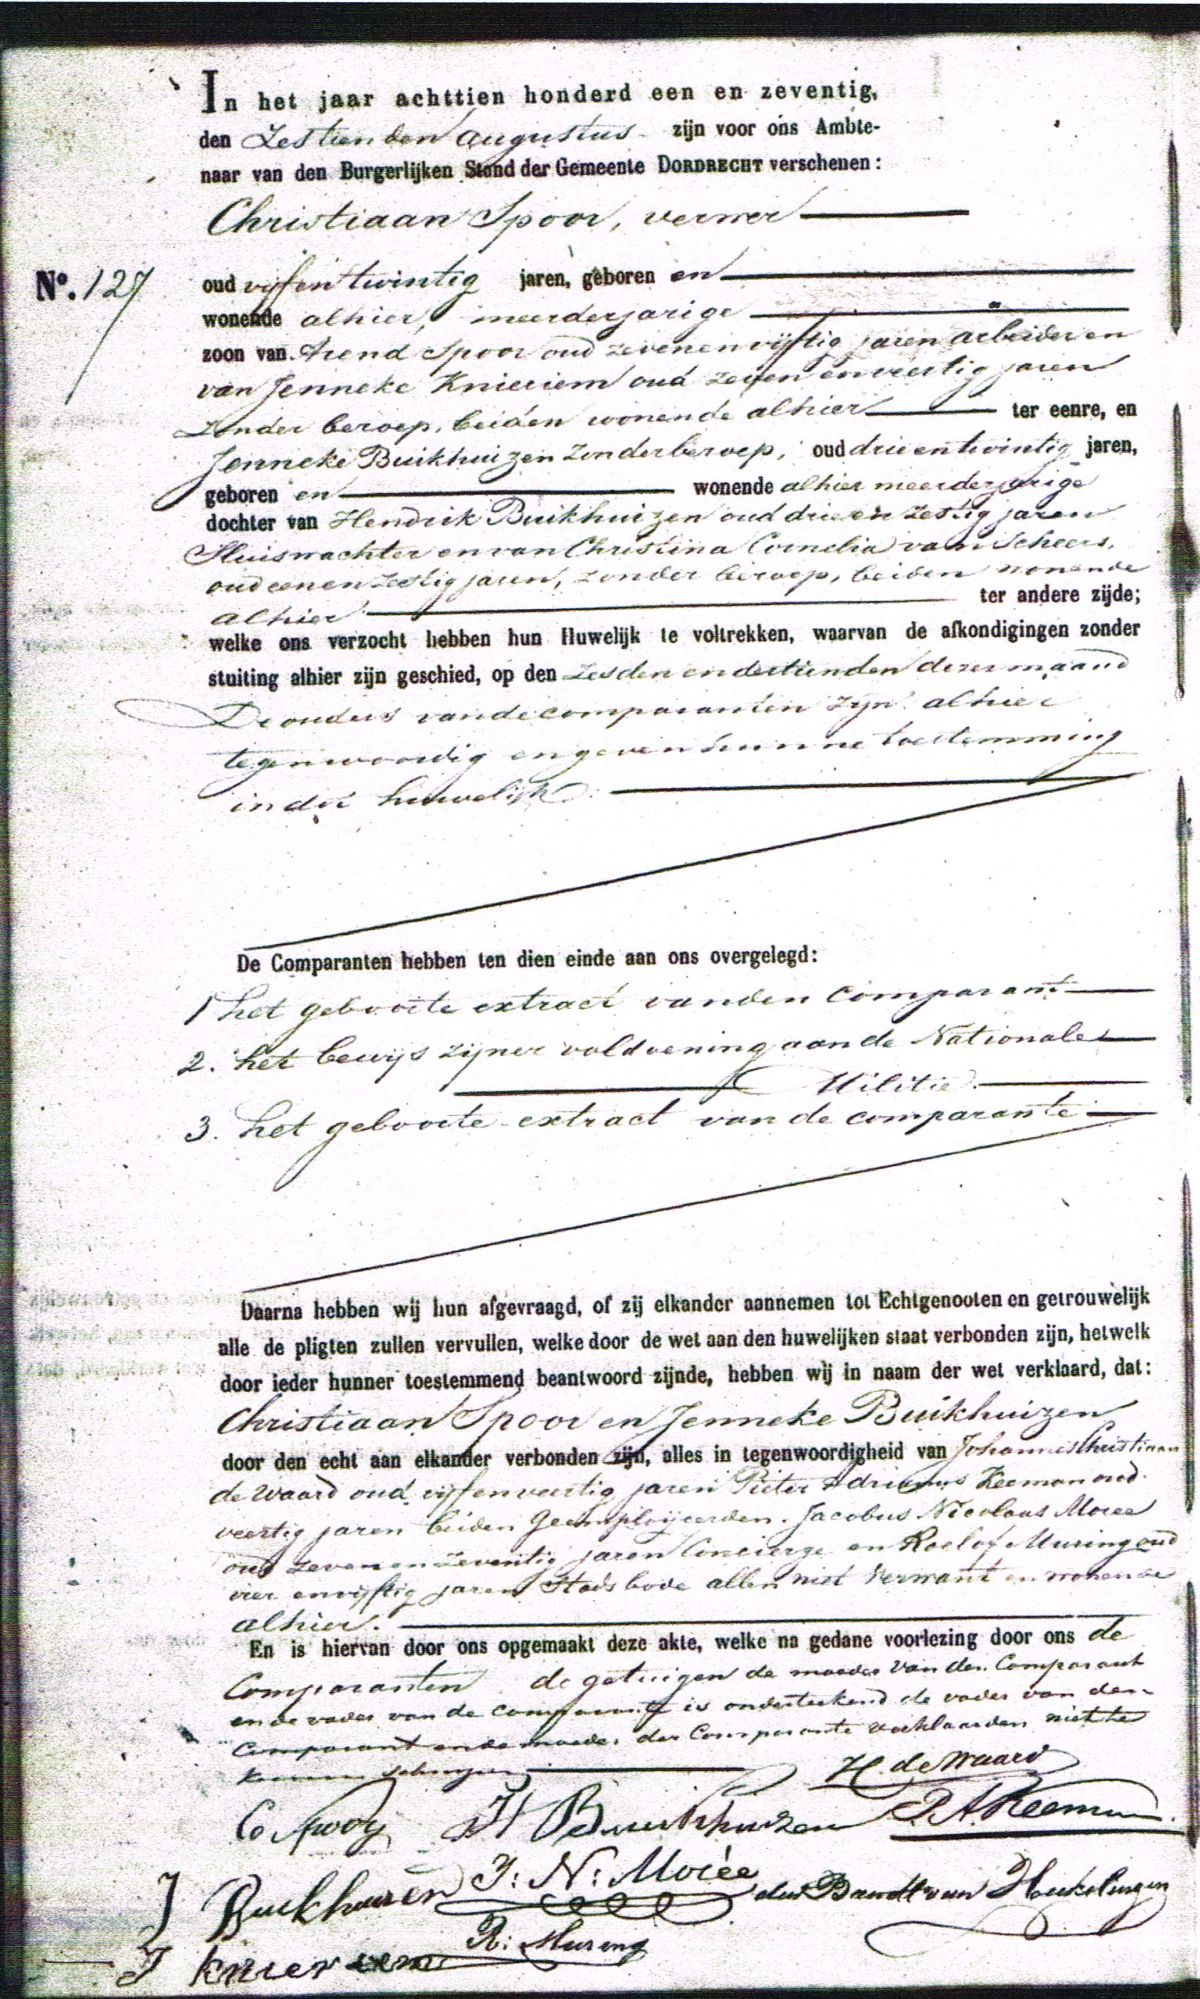 In het jaar achttien honderd een en zeventig,
den Zestienden Augustus zijn voor ons Ambte-
naar van den Burgerlijken Stand der Gemeente DORDRECHT verschenen:
Christiaan Spoor, verwer
No. 127
oud vijfentwintig jaren, geboren en
wonende alhier, meerderjarige
zoon van Arend Spoor oud zevenenvijftig jaren arbeider en
van Jenneke Knieriem oud zeven en veertig jaren
zonder beroep, beiden wonende alhier ter eenre, en
Jenneke Buikhuizen zonder beroep, oud drieentwintig jaren,
geboren en wonende alhier meerderjarige
dochter van Hendrik Buikhuizen oud drie en zestig jaren
Sluiswachter en van Christina Cornelia van Scheers,
oud eenenzestig jaren, zonder beroep, beiden wonende
alhier ter andere zijde;
welke ons verzocht hebben hun Huwelijk te voltrekken, waarvan de afkondigingen zonder
stuiting alhier zijn geschied, op den zesden en dertienden dezer maand
De ouders van de comparanten zijn alhier
tegenwoordig en geven hunne toestemming
in dit huwelijk.
De Comparanten hebben ten dien einde aan ons overgelegd:
1 het geboorte extract van den comparant
2. het bewijs zijner voldoening aan de Nationale
Militie.
3. het geboorte extract van de comparante
Daarna hebben wij hun afgevraagd, of zij elkander aannemen tot Echtgenooten en getrouwelijk
alle de pligten zullen vervullen, welke door de wet aan den huwelijken staat verbonden zijn, hetwelk
door ieder hunner toestemmend beantwoord zijnde, hebben wij in naam der wet verklaard, dat:
Christiaan Spoor en Jenneke Buikhuizen
door den echt aan elkander verbonden zijn, alles in tegenwoordigheid van Johannes Christiaan
de Waard oud vijfenveertig jaren Pieter Adrianus Keeman oud
veertig jaren beiden Geemploijeerden, Jacobus Nicolaas Moree
oud zevenenzeventig jaren Concierge en Roelof Muring oud
vier envijftig jaren Stadsbode allen niet verwant en wonende
alhier.
En is hiervan door ons opgemaakt deze akte, welke na gedane voorlezing door ons de
Comparanten de getuigen de moeder van den Comparant
en de vader van de comparante is onderteekend de vader van den
Comparant en de moeder der Comparante verklaarden niet te
kunnen schrijven
H de Waard
C Spoor H Buikhuizen P. A. Keeman
J Buikhuizen J: N: Morée
J Knieriem R: Muring